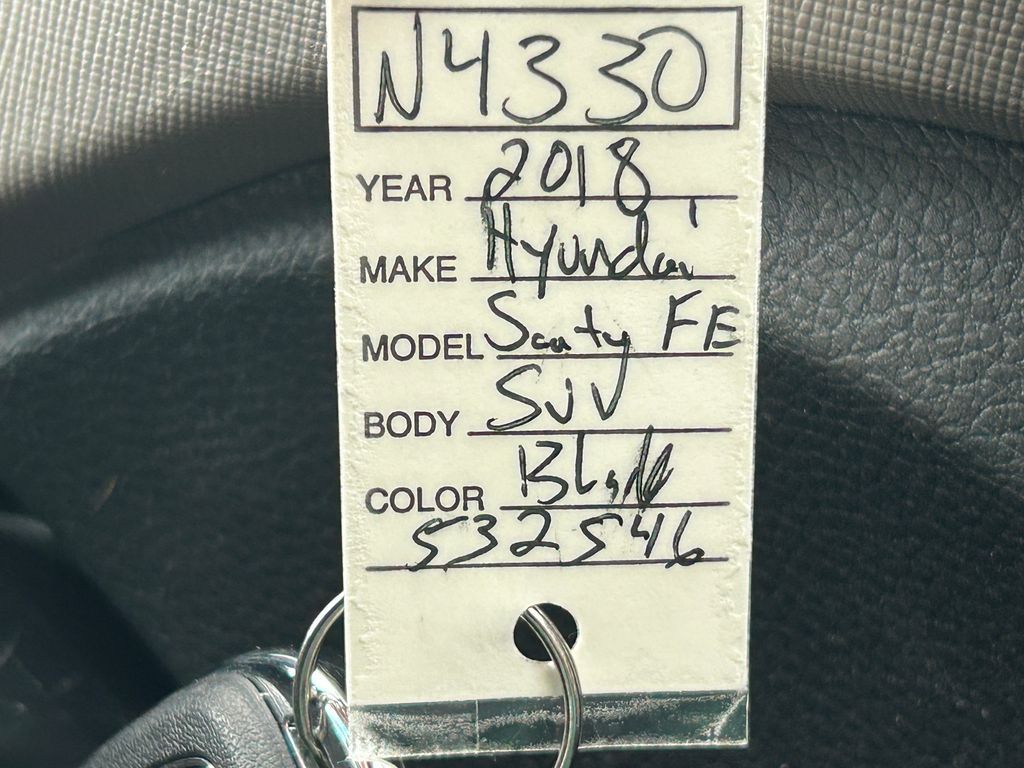 N4330
YEAR 2018
MAKE Hyundai
MODEL Santy FE
BODY SUV
COLOR
532546